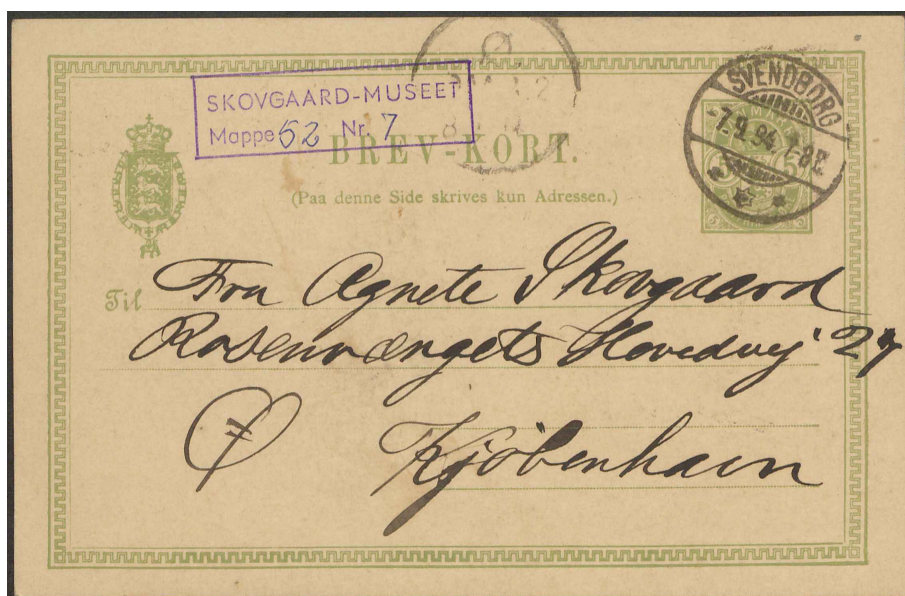 SKOVGAARD-MUSEET
Mappe 52 Nr. 7
SVENDBORG
-7.9.94. 7-8E
BREV-KORT.
(Paa denne Side skrives kun Adressen.)
Til Fru Agnete Skovgaard
Rosenvængets Hovedvej 27
Ø Kjöbenhavn